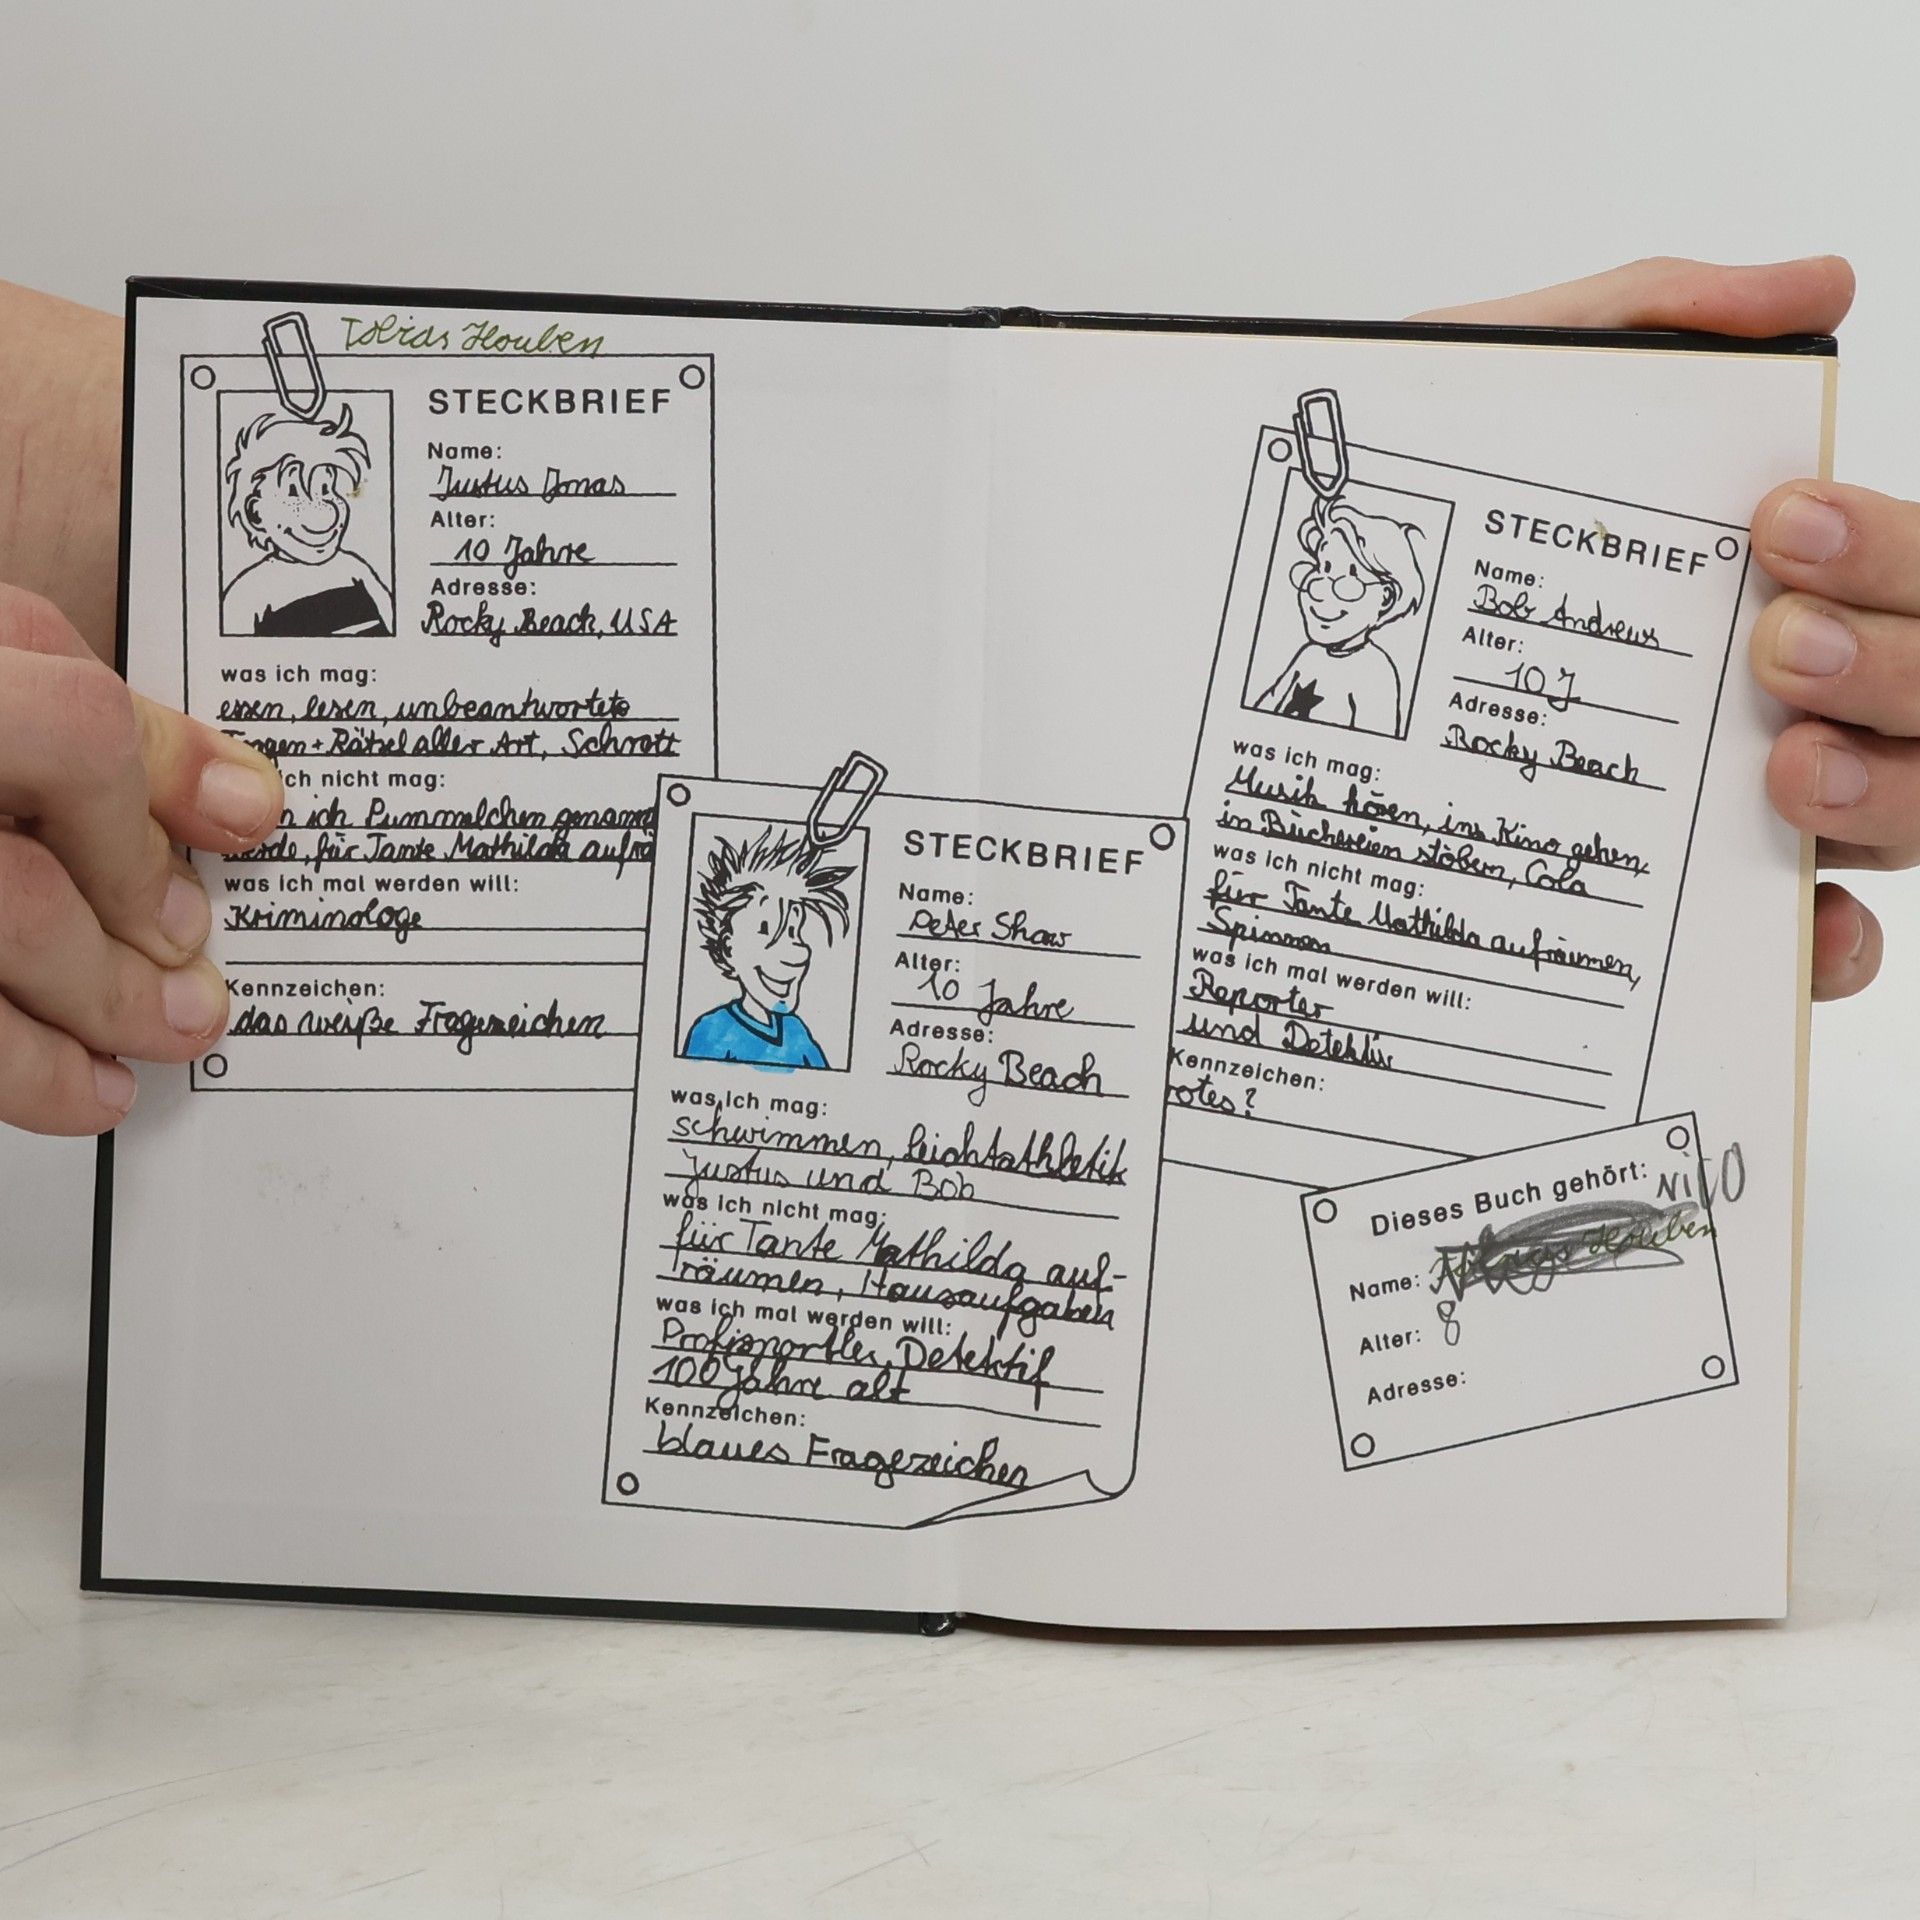 Tobias Houben
STECKBRIEF
Name:
Justus Jonas
Alter:
10 Jahre
Adresse:
Rocky Beach, USA
was ich mag:
essen, lesen, unbeantwortete
Fragen + Rätsel aller Art, Schrott
ich nicht mag:
ich Pummelchen genannt
werde, für Tante Mathilda aufrä
was ich mal werden will:
Kriminologe
Kennzeichen:
das weiße Fragezeichen
STECKBRIEF
Name:
Peter Shaw
Alter:
10 Jahre
Adresse:
Rocky Beach
was ich mag:
schwimmen, Leichtathletik
Justus und Bob
was ich nicht mag:
für Tante Mathilda auf-
räumen, Hausaufgaben
was ich mal werden will:
Profisportler, Detektif
100 Jahre alt
Kennzeichen:
blaues Fragezeichen
STECKBRIEF
Name:
Bob Andrews
Alter:
10 J
Adresse:
Rocky Beach
was ich mag:
Musik hören, ins Kino gehen,
in Büchereien stöbern, Cola
was ich nicht mag:
für Tante Mathilda aufräumen,
Spinnen
was ich mal werden will:
Reporter
und Detektiv
Kennzeichen:
rotes?
Dieses Buch gehört: NiCO
Name: Houben
Alter: 8
Adresse: